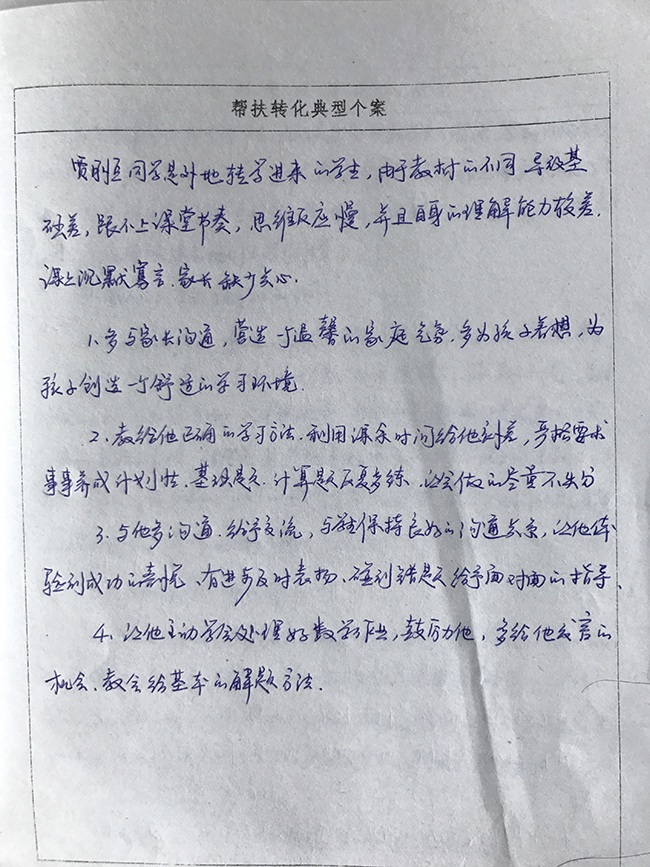 帮扶转化典型个案
贾刚同学是外地转学进来的学生，由于教材的不同导致基
础差，跟不上课堂节奏，思维反应慢，并且自身的理解能力较差，
课上沉默寡言、家长缺少关心。
1、多与家长沟通，营造一个温馨的家庭气氛，多为孩子着想，为
孩子创造一个舒适的学习环境。
2、教给他正确的学习方法、利用课余时间给他补差，严格要求
事事养成计划性、基础题、计算题反复多练、让会做的尽量不失分
3、与他多沟通、给予交流，与保持良好的沟通关系，让他体
验到成功的喜悦、有进步及时表扬、碰到错题给予面对面的指导、
4、让他主动学会处理好数学作业，鼓励他，多给他发言的
机会、教会给基本的解题方法.